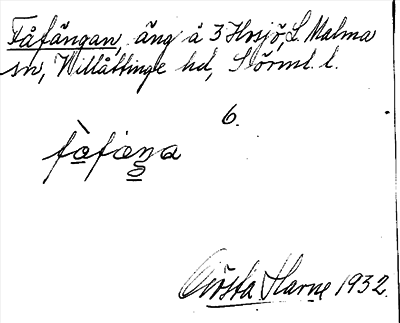 Fåfängan, äng å 3 Hosjö, L. Malma
sn, Villåttinge hd, Sörml. l.
6.
fàfäŋa
Gösta Harne 1932.